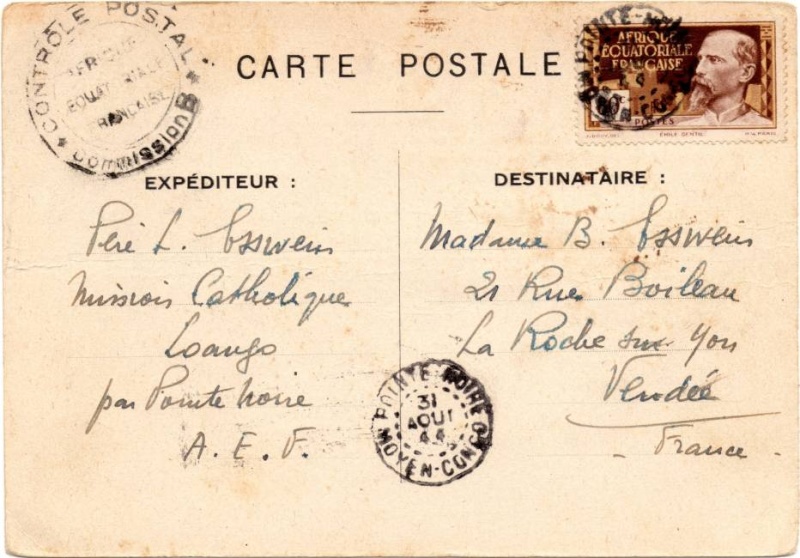 CONTRÔLE POSTAL
AFRIQUE
ÉQUATORIALE
FRANÇAISE
Commission B
CARTE POSTALE
POINTE-NOIRE
MOYEN-CONGO
AFRIQUE
ÉQUATORIALE
FRANÇAISE
POSTES
ÉMILE GENTIL
EXPÉDITEUR :
Père L. Esswein
Mission Catholique
Loango
par Pointe Noire
A. E. F.
DESTINATAIRE :
Madame B. Esswein
21 Rue Boileau
La Roche sur Yon
Vendée
- France -
POINTE-NOIRE
31
AOUT
44
MOYEN-CONGO